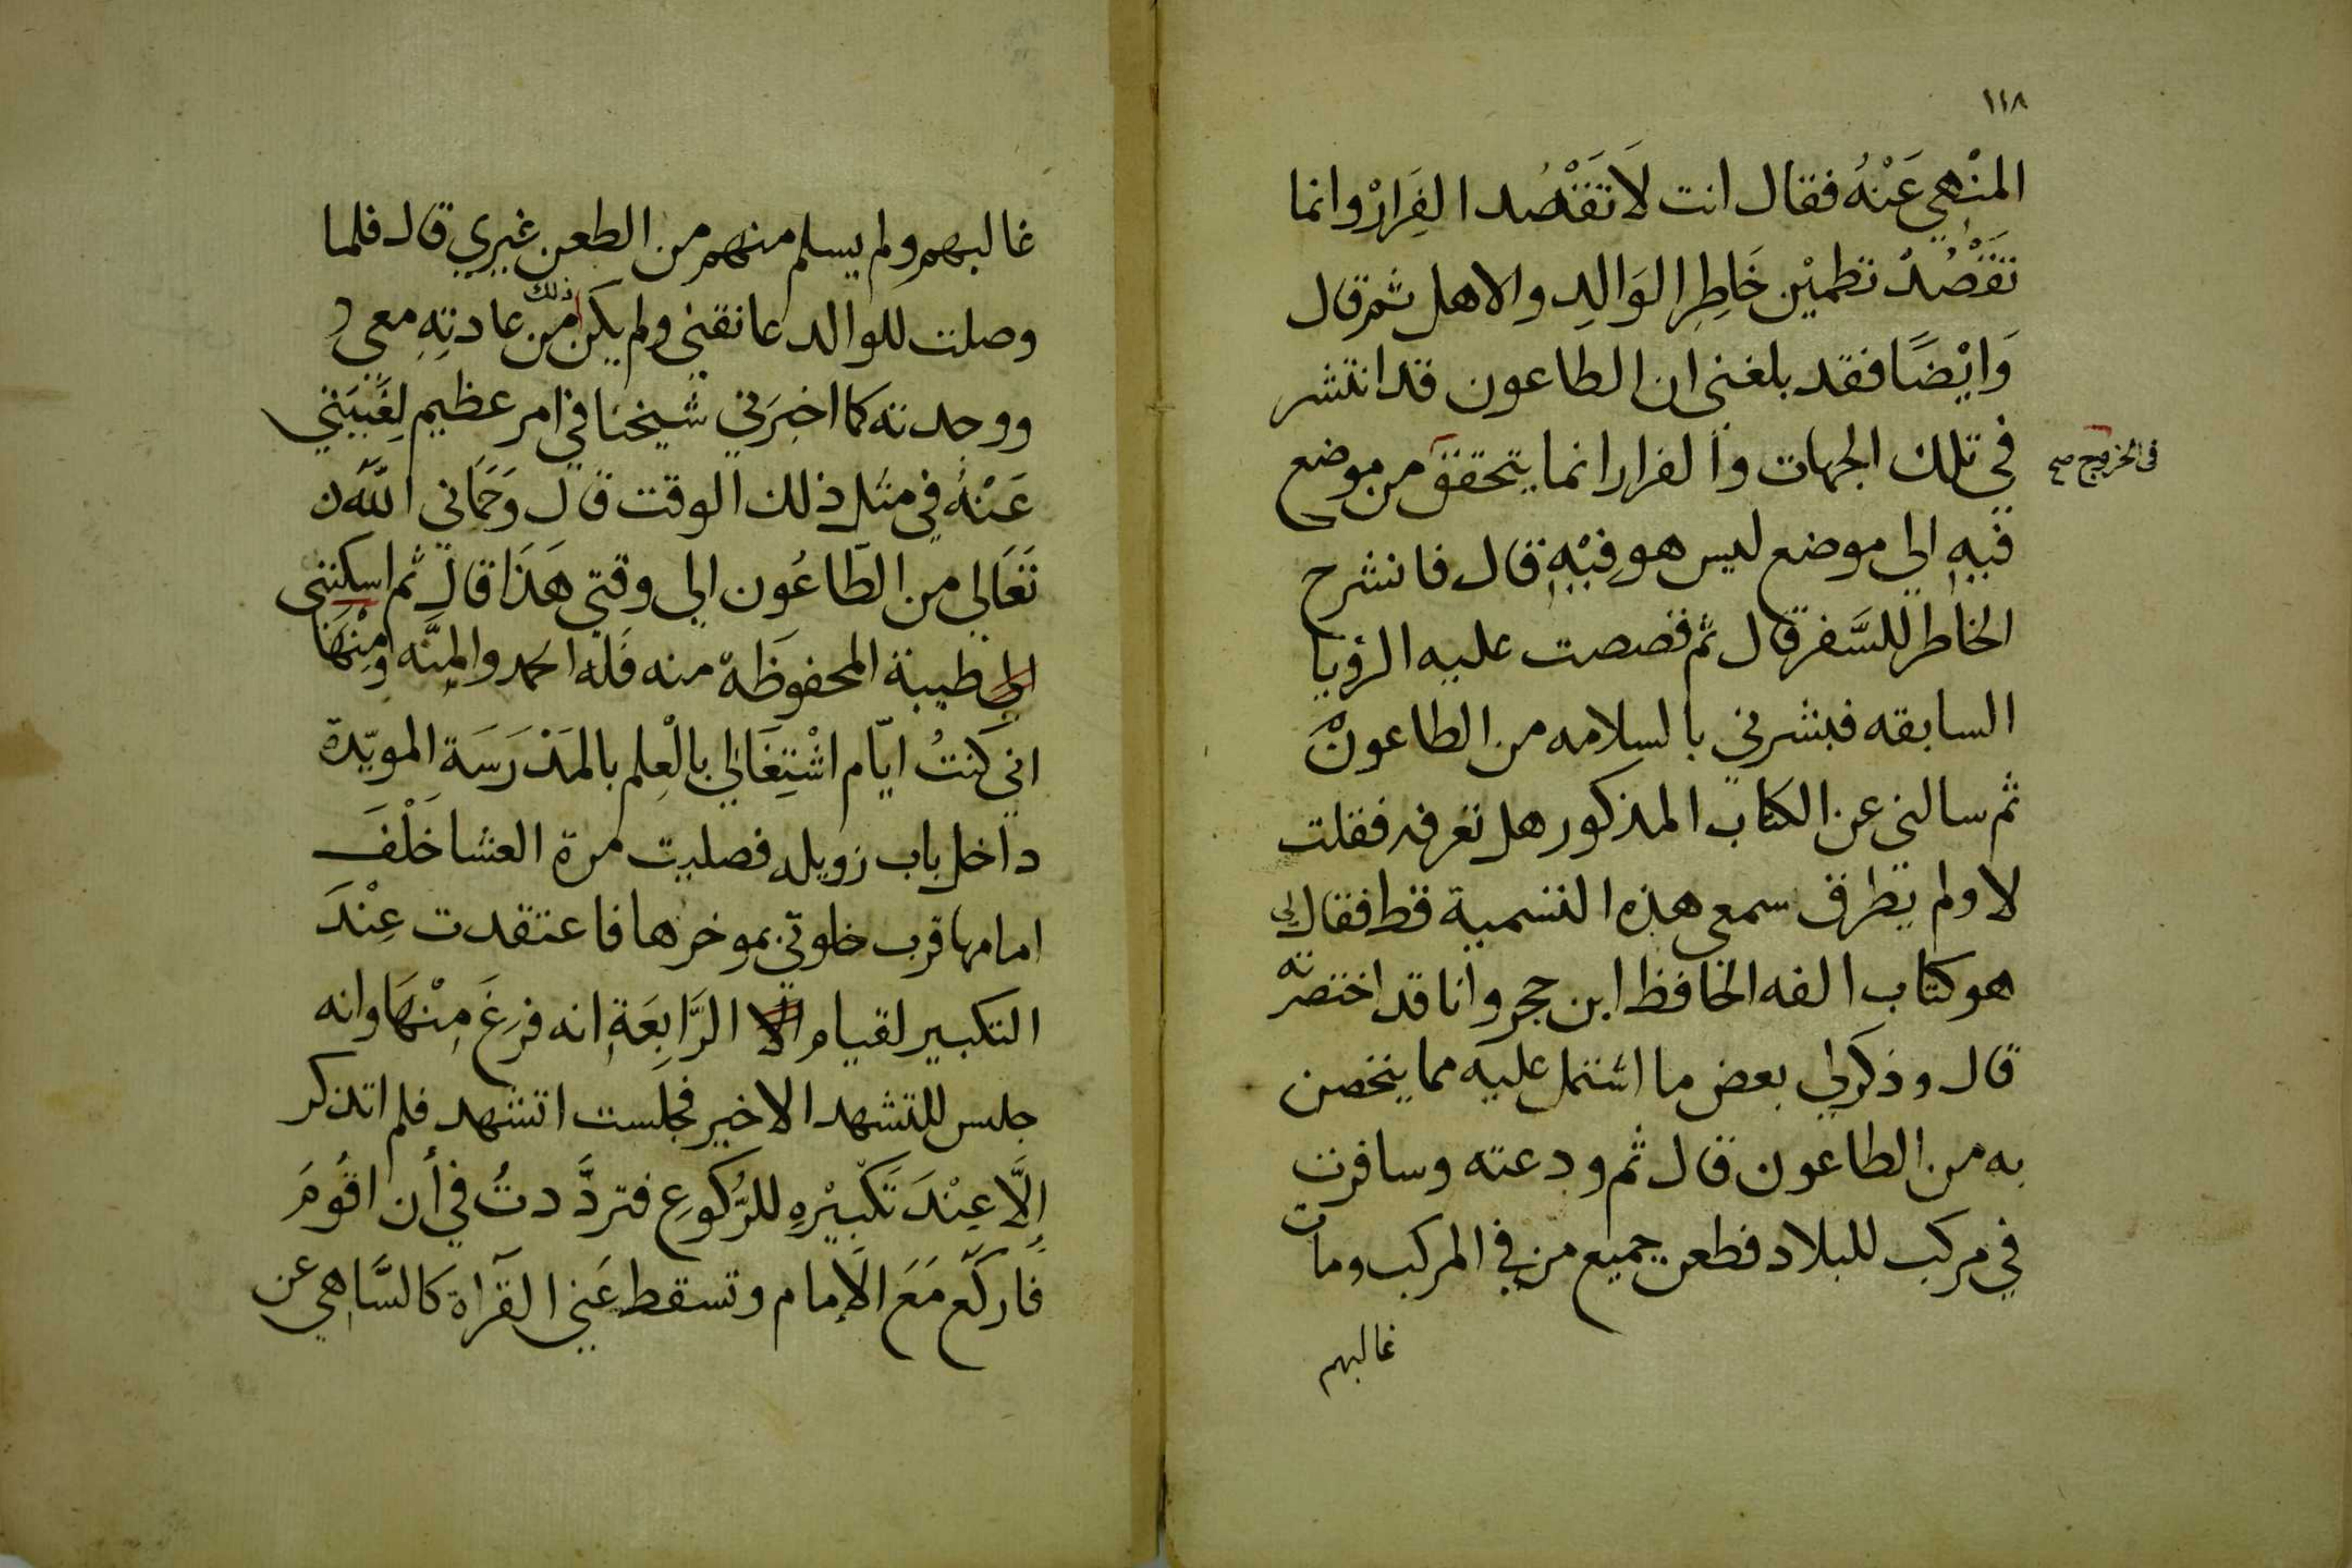 ١١٨
المنْهِي عَنْهُ فقال انت لَا تَقْصُد الفِرَارْ وانما
تَقْصُدُ تطمْيْن خَاطِرِ الوَالِدِ والاهل ثم قال
وَايْضًا فقد بلغني ان الطاعون قد انتشر
في تلك الجهات والفرار انما يتحقق من موضع
في الخروج صح
فيهِ الي موضع ليس هو فِيْهِ قال فانشرح
الخاطر للسَّفر قال ثم قصصت عليه الرؤيا
السابقه فبشرني بالسلامه من الطاعون
ثم سالني عن الكتاب المذكور هل تعرفه فقلت
لا ولم يطرق سمعي هذه التسمية قط فقال لي
هو كتاب الفه الحافظ ابن حجر وانا قد اختصرته
قال وذكر لي بعض ما اشتمل عليه مما يتحصن
به من الطاعون قال ثم ودعته وسافرت
في مركب للبلاد فطعن جميع من في المركب ومات
غالبهم
غالبهم ولم يسلم منهم من الطعن غيري قال فلما
وصلت للوالد عانقني ولم يكن ذلك من عادتِهِ معي
ووجدته كما اخبَرَني شيخنا في امر عظيم لِغَيْبَتي
عَنْهُ في مثل ذلك الوقت قال وَحَمَاني اللّه
تَعَالي من الطَّاعُون الي وقتي هَذَا قال ثم اسكنني
الي طيبة المحفوظَة منه فَلَه الحمد والمِنَّه وَمِنْهَا
اني كَنتُ ايّام اشْتِغَالي بالْعِلم بالمَدْرَسَة المويّدة
داخل باب زويله فصليت مرة العشا خَلْفَ
امامها قرب خلوتي بموخرها فاعتقدت عِنْدَ
التكبير لقيام الا الرَّابِعَةِ انه فرغَ مِنْهَا وانه
جلس للتشهد الاخير فجلست اتشهد فلم اتذكر
إلَّا عِنْدَ تَكْبيْرِهِ للرُّكُوعِ فتردَّدتُ في أن اقُومَ
فَاركَع مَعَ الَامام وتسقط عَني القرَاة كالسَّاهِي عن